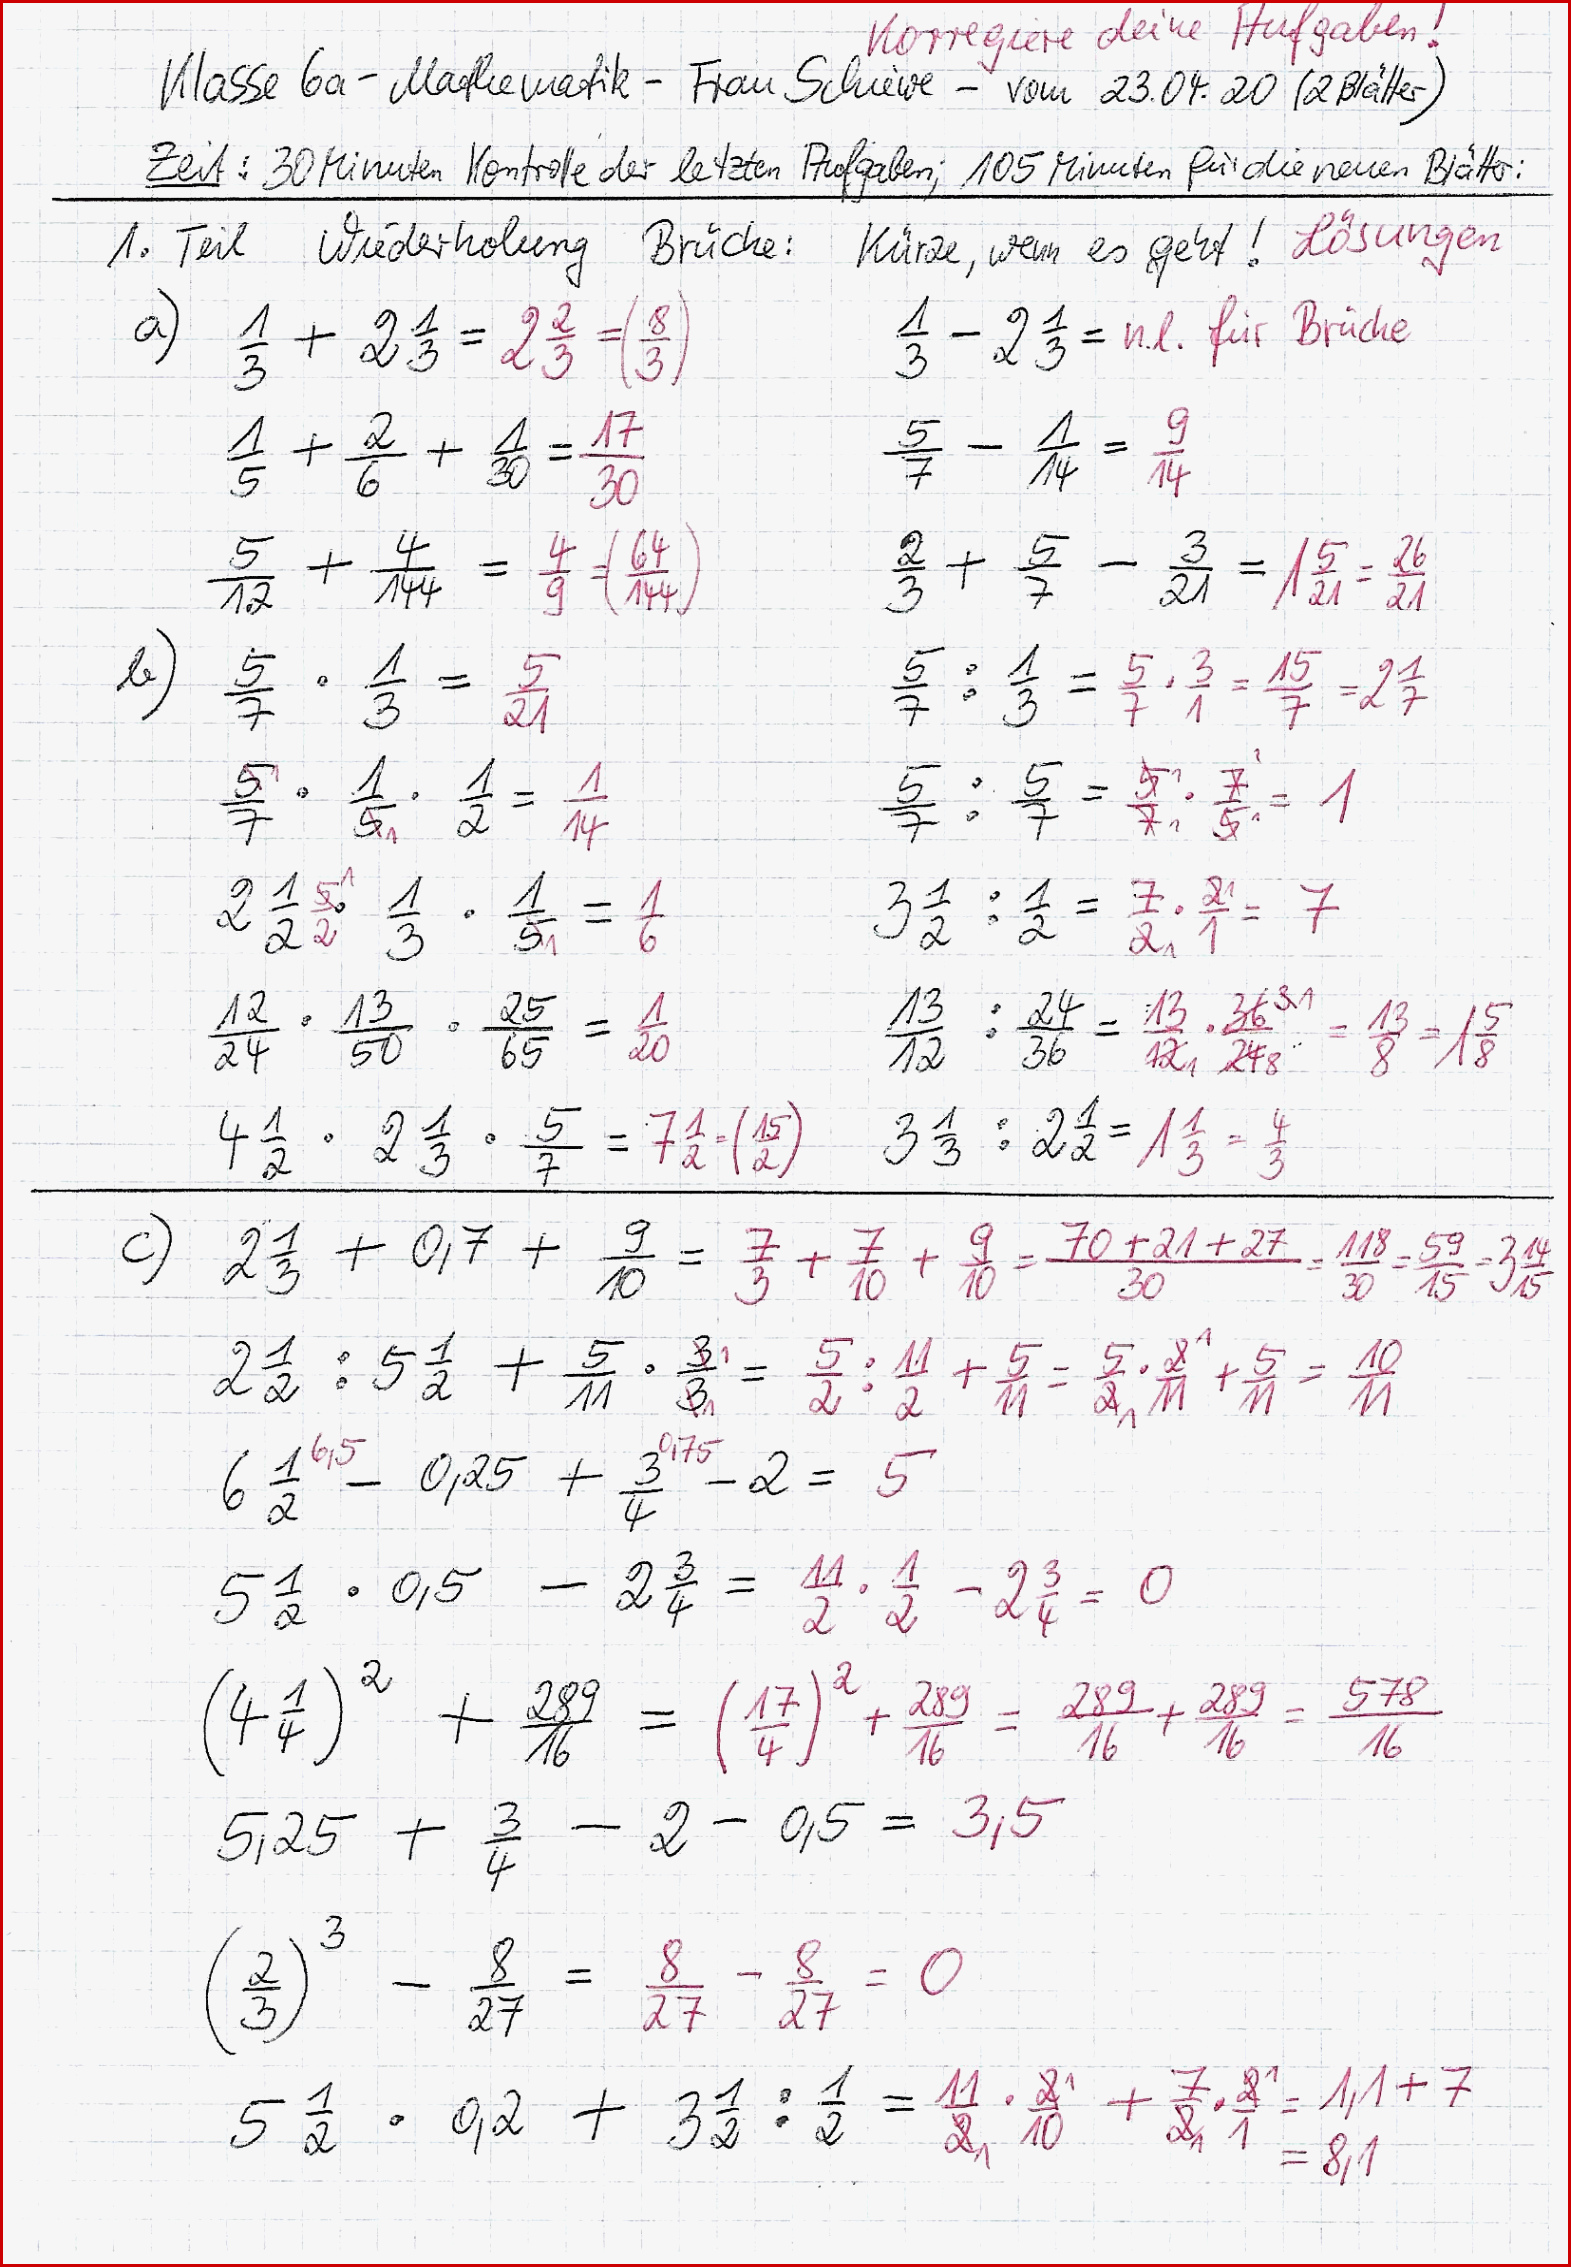 Korregiere deine Aufgaben!
Klasse 6a - Mathematik - Frau Schiewe - vom 23.04.20 (2 Blätter)
Zeit: 30 Minuten Kontrolle der letzten Aufgaben; 105 Minuten für die neuen Blätter:
1. Teil Wiederholung Brüche: Kürze, wenn es geht! Lösungen
a) 1/3 + 2 1/3 = 2 2/3 = (8/3) 1/3 - 2 1/3 = n.l. für Brüche
1/5 + 2/6 + 1/30 = 17/30 5/7 - 1/14 = 9/14
5/12 + 4/144 = 4/9 = (64/144) 2/3 + 5/7 - 3/21 = 1 5/21 = 26/21
b) 5/7 · 1/3 = 5/21 5/7 : 1/3 = 5/7 · 3/1 = 15/7 = 2 1/7
5 1/7 · 1/5 1 · 1/2 = 1/14 5/7 : 5/7 = 5 1/7 1 · 7 1/5 1 = 1
2 1/2 5 1/2 · 1/3 · 1/5 1 = 1/6 3 1/2 : 1/2 = 7/2 1 · 2 1/1 = 7
12/24 · 13/50 · 25/65 = 1/20 13/12 : 24/36 = 13/12 1 · 36 3 1/24 8 = 13/8 = 1 5/8
4 1/2 · 2 1/3 · 5/7 = 7 1/2 = (15/2) 3 1/3 : 2 1/2 = 1 1/3 = 4/3
c) 2 1/3 + 0,7 + 9/10 = 7/3 + 7/10 + 9/10 = 70 + 21 + 27/30 = 118/30 = 59/15 = 3 14/15
2 1/2 : 5 1/2 + 5/11 · 3 1/3 1 = 5/2 : 11/2 + 5/11 = 5/2 1 · 2 1/11 + 5/11 = 10/11
6 1/2 6,5 - 0,25 + 3/4 0,75 - 2 = 5
5 1/2 · 0,5 - 2 3/4 = 11/2 · 1/2 - 2 3/4 = 0
(4 1/4)² + 289/16 = (17/4)² + 289/16 = 289/16 + 289/16 = 578/16
5,25 + 3/4 - 2 - 0,5 = 3,5
(2/3)³ - 8/27 = 8/27 - 8/27 = 0
5 1/2 · 0,2 + 3 1/2 : 1/2 = 11/2 1 · 2 1/10 + 7/2 1 · 2 1/1 = 1,1 + 7
= 8,1